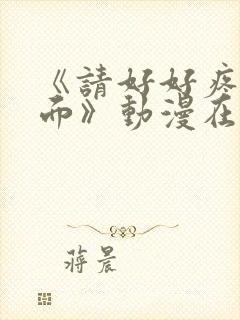 《請好好疼
而》動漫在
蔣晨